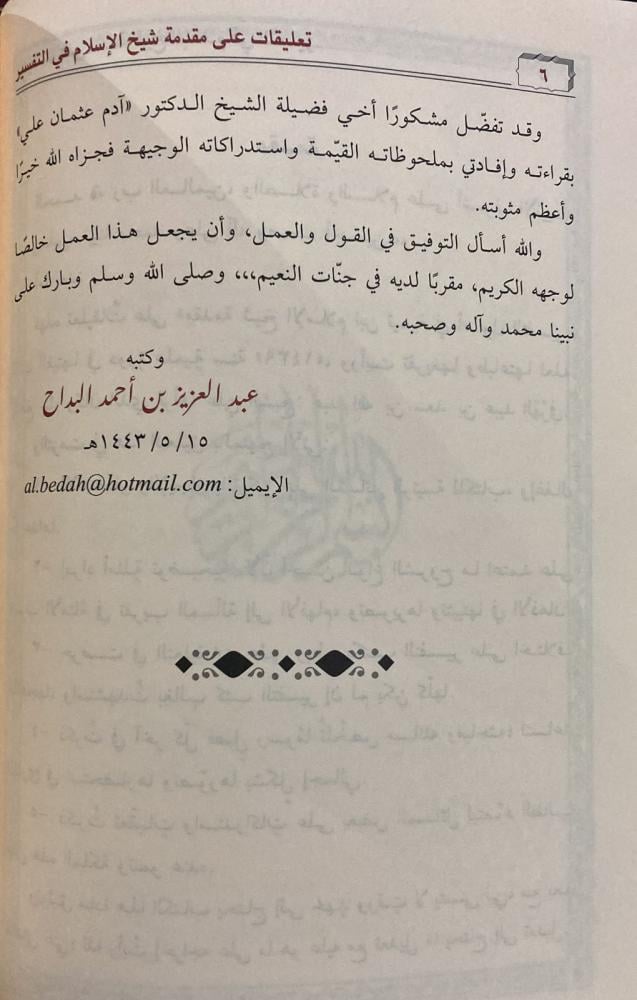 تعليقات على مقدمة شيخ الإسلام في التفسير
٦
وقد تفضّل مشكورًا أخي فضيلة الشيخ الدكتور «آدم عثمان علي»
بقراءته وإفادتي بملحوظاته القيّمة واستدراكاته الوجيهة فجزاه الله خيرًا
وأعظم مثوبته.
والله أسأل التوفيق في القول والعمل، وأن يجعل هذا العمل خالصًا
لوجهه الكريم، مقربًا لديه في جنّات النعيم،،، وصلى الله وسلم وبارك على
نبينا محمد وآله وصحبه.
وكتبه
عبد العزيز بن أحمد البداح
١٥/ ٥/ ١٤٤٣هـ
الإيميل: al.bedah@hotmail.com